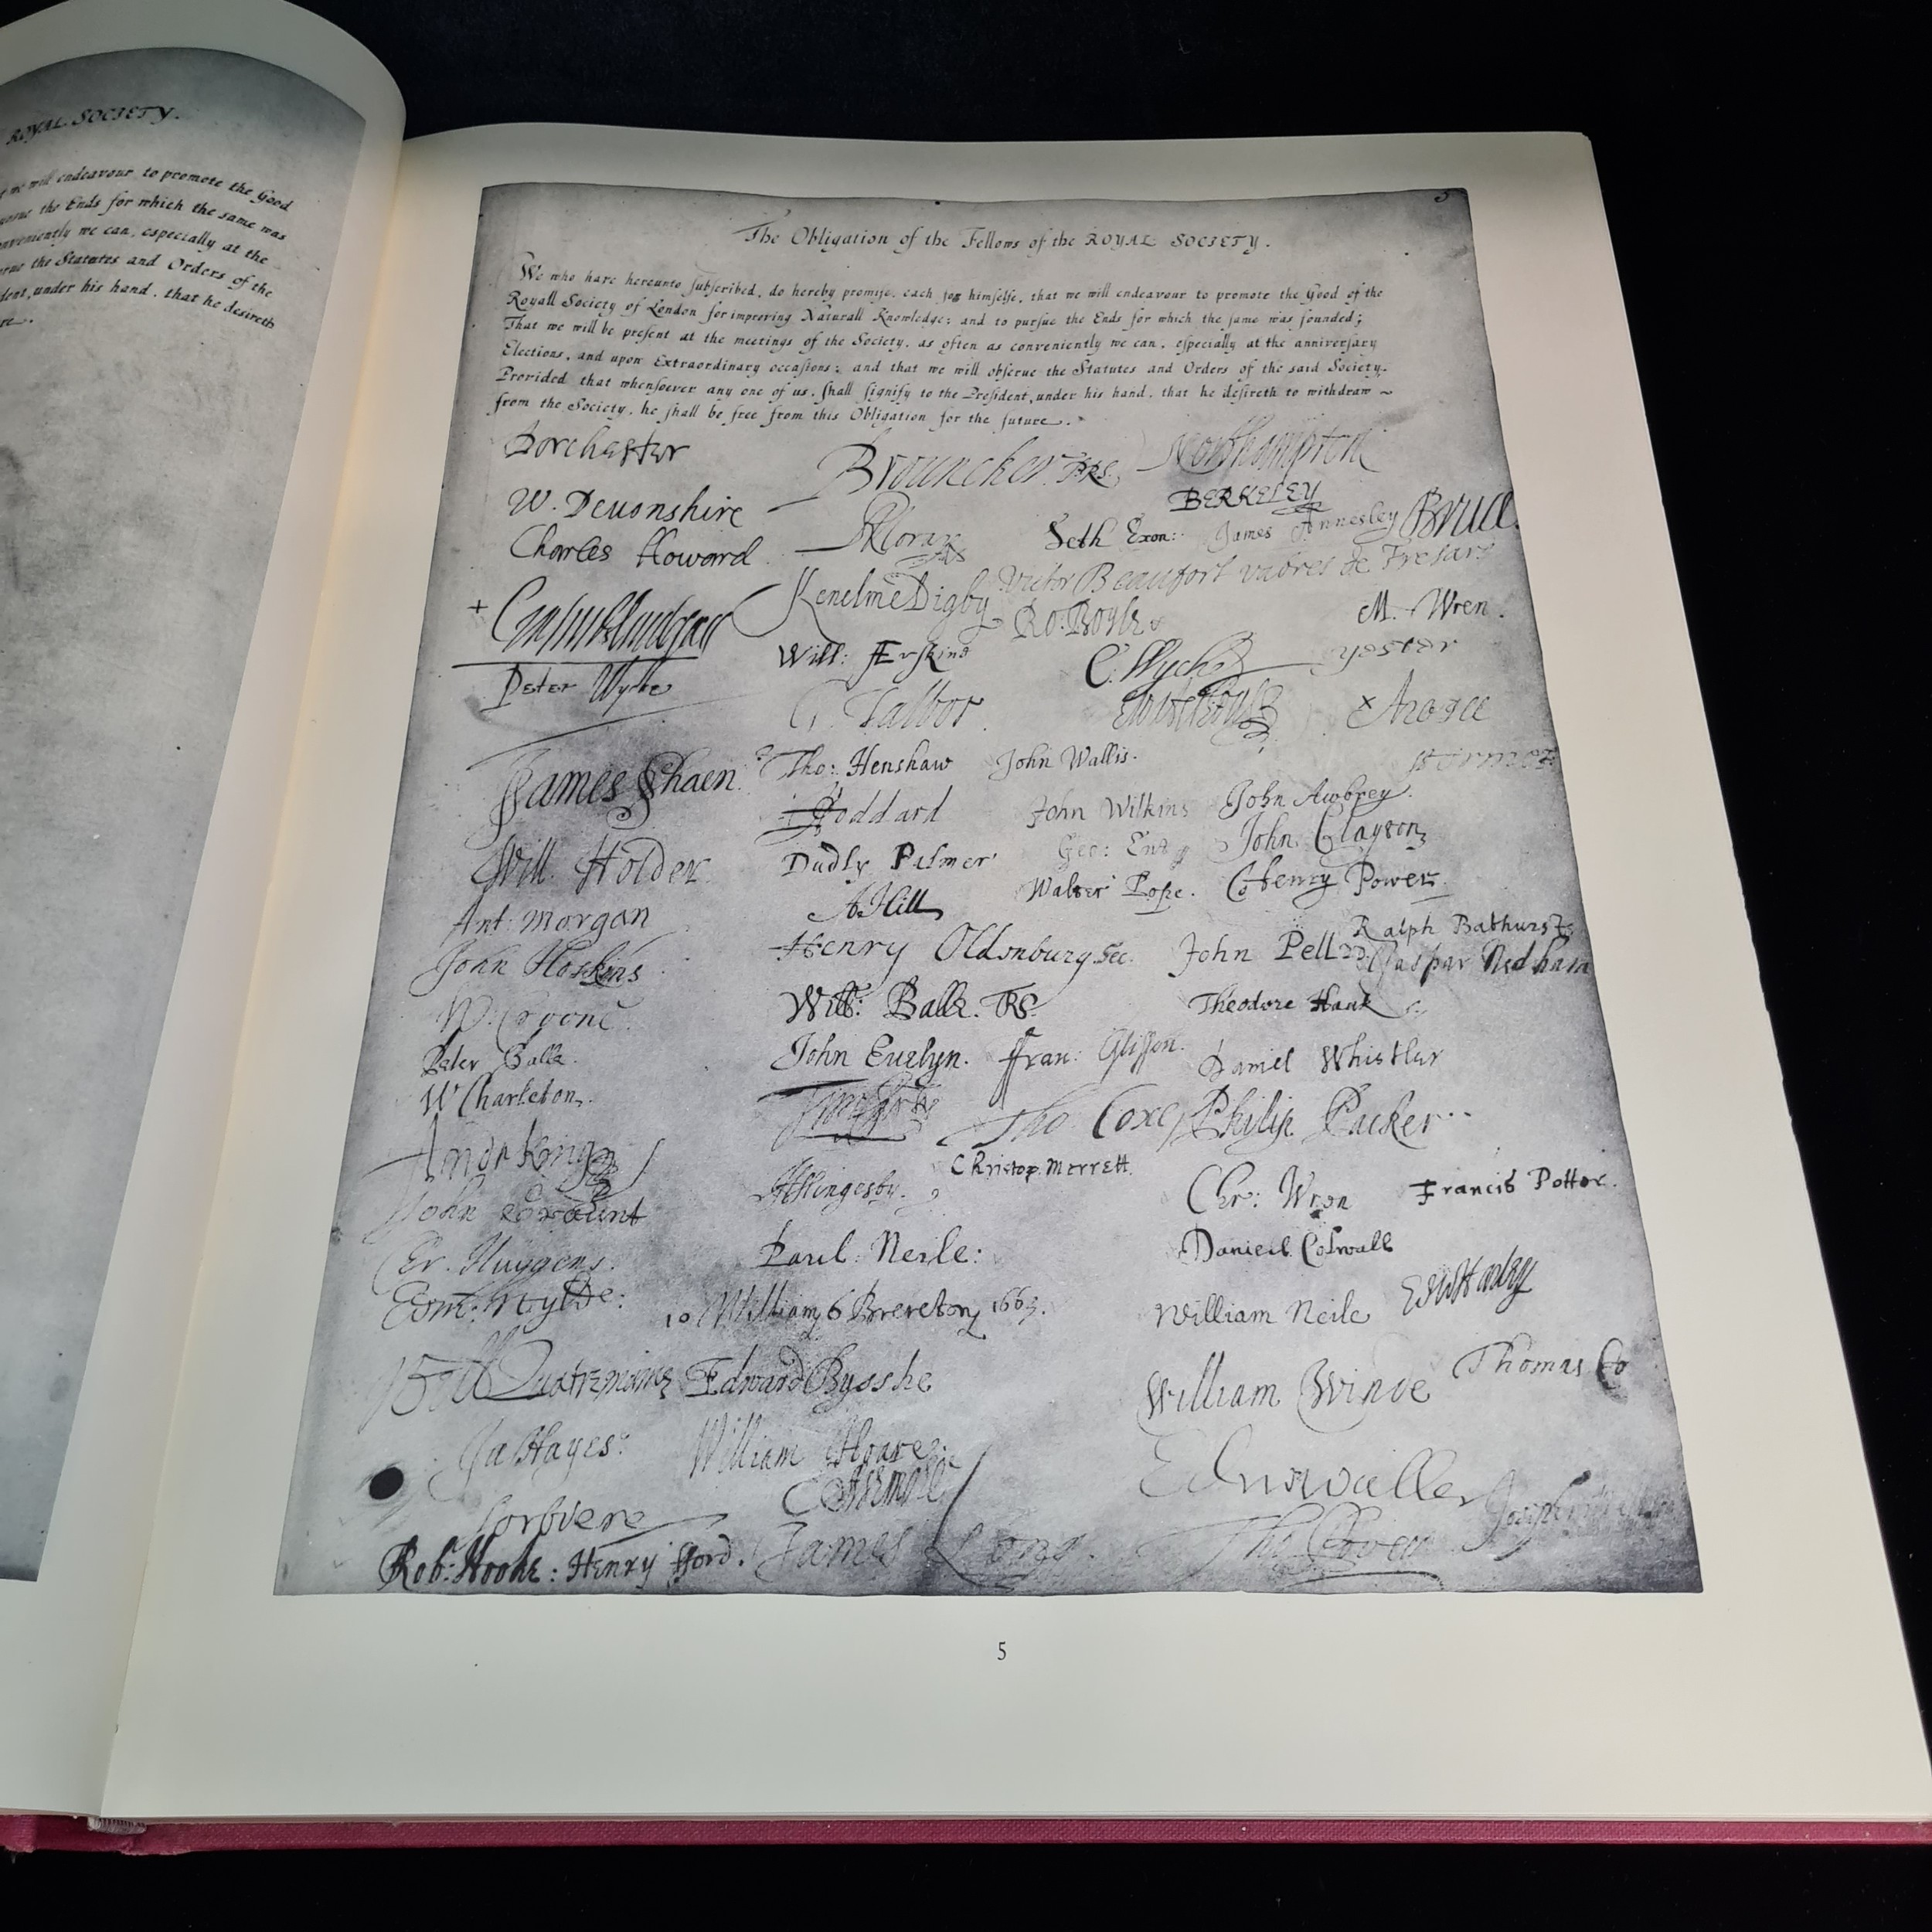 ROYAL SOCIETY.
we will endeavour to promote the Good
the Ends for which the same was
conveniently we can, especially at the
the Statutes and Orders of the
under his hand, that he desireth
5
The Obligation of the Fellows of the ROYAL SOCIETY.
We who have hereunto ſubſcribed, do hereby promiſe, each for himſelfe, that we will endeavour to promote the Good of the
Royall Society of London for improving Naturall Knowledge; and to purſue the Ends for which the ſame was founded;
That we will be preſent at the meetings of the Society, as often as conveniently we can, eſpecially at the anniverſary
Elections, and upon Extraordinary occaſions; and that we will obſerue the Statutes and Orders of the said Society.
Provided that whenſoever any one of us, ſhall ſignify to the Preſident, under his hand, that he deſireth to withdraw ~
from the Society, he ſhall be free from this Obligation for the future.
Dorchester Brouncker. PRS. Northampton
BERKELEY
W. Deuonshire Seth Exon: James Annesley Bruce.
Charles Howard
Kenelme Digby Victor Beaufort vabres de Fresars
Ro: Boyle M. Wren.
Will: Erskine C. Wyche yester
Peter Wyche
G. Talbot
James Shaen Tho: Henshaw John Wallis.
Goddard John Wilkins John Awbrey.
Geo: Ent John Clayton
Will. Holder Dudly Palmer Walter Pope. Henry Power
Ant: Morgan A Hill
Ralph Bathurst
John Hoskins Henry Oldenburg Sec. John Pell Gaspar Nedham
W. Croone Will: Balle. TRS. Theodore Haak
Peter Balle. John Euelyn. ffran: Glisson. Daniel Whistler
W Charleton.
Tho Coxe Philip Packer
Andr King Christop. Merrett.
John Graunt HSlingesby. Chr: Wren Francis Potter.
Cr. Huygens. Paul: Neile: Daniell Colwall
Edm: Wylde: 10 William 6 Brereton 1663. William Neile EdwHarley
Will Quatremaine Edward Bysshe William Winde Thomas Co
Ja Hayes: William Hoare.
EAsmole Edm waller
Sorbiere
Rob: Hooke: Henry fford. James Long.
5